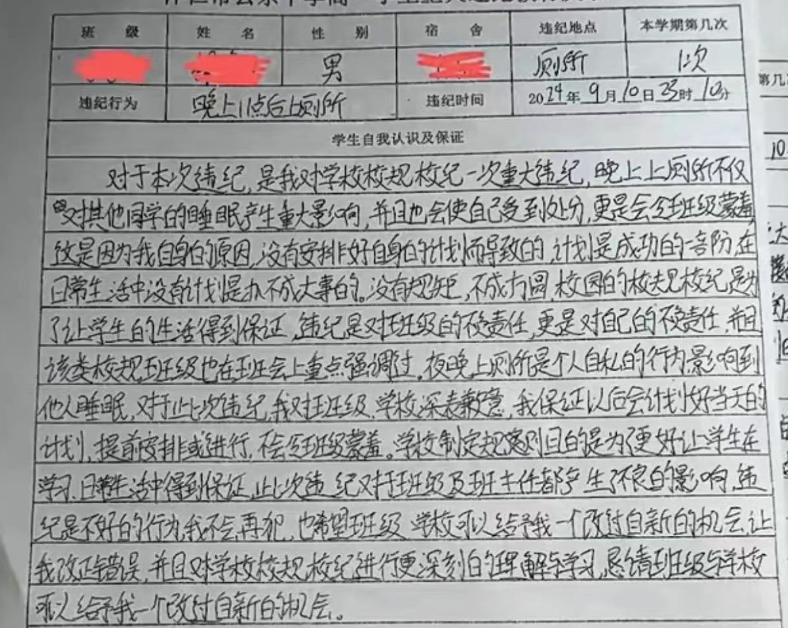 班 级 姓 名 性 别 宿 舍 违纪地点 本学期第几次
男 厕所 1次
违纪行为 晚上11点后上厕所 违纪时间 2024年9月10日23时10分
学生自我认识及保证
对于本次违纪,是我对学校校规校纪一次重大违纪,晚上上厕所不仅
对其他同学的睡眠产生重大影响,并且也会使自己受到处分,更是会令班级蒙羞
这是因为我自身的原因,没有安排好自身的计划而导致的,计划是成功的一部分,在
日常生活中没有计划是办不成大事的。没有规矩,不成方圆,校园的校规校纪是为
了让学生的生活得到保证,违纪是对班级的不负责任,更是对自己的不负责任,并且
该类校规班级也在班会上重点强调过,夜晚上厕所是个人自私的行为,影响到
他人睡眠,对于此次违纪,我对班级、学校深表歉意,我保证以后会计划好当天的
计划,提前安排或进行,不会令班级蒙羞。学校制定规章则目的是为了更好让学生在
学习、日常生活中得到保证,此次违纪对于班级及班主任都产生了不良的影响,违
纪是不好的行为,我不会再犯,也希望班级、学校可以给予我一个改过自新的机会,让
我改正错误,并且对学校校规校纪进行更深刻的理解与学习,恳请班级与学校
可以给予我一个改过自新的机会。
第几
10